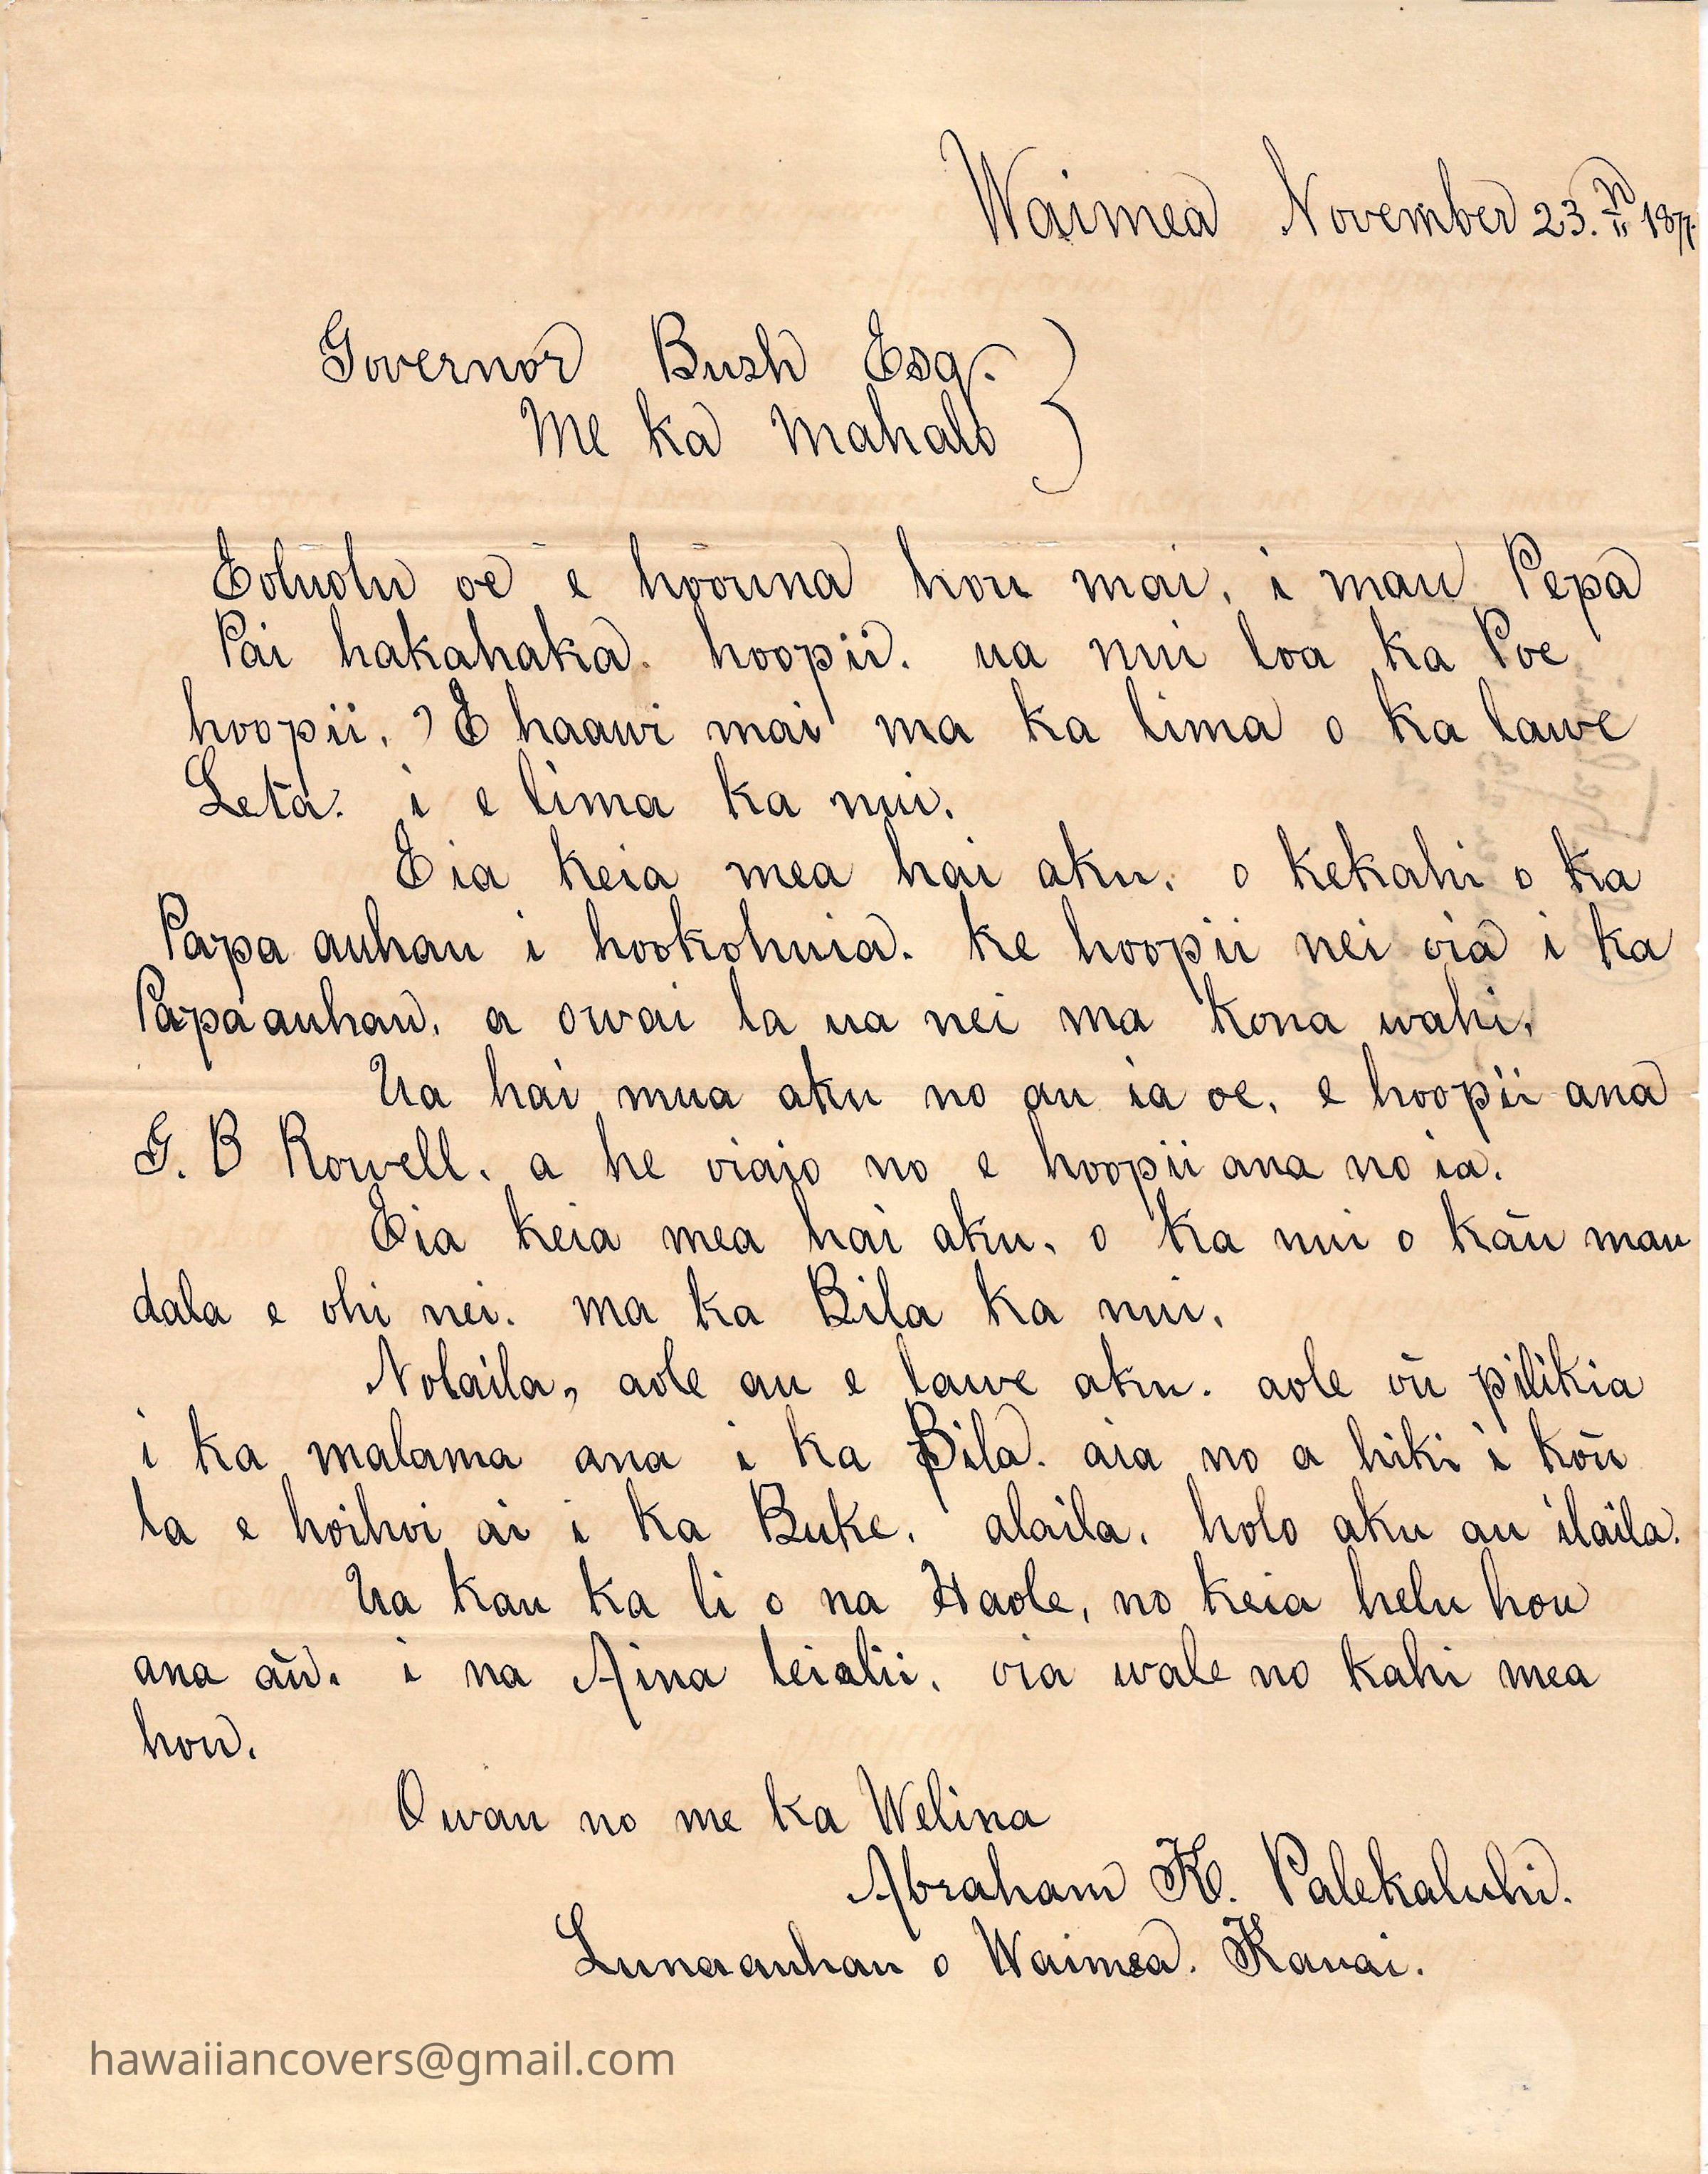 Waimea November 23.n 1877.
Governor Bush Esq.
Me ka Mahalo
Eoluolu oe e hoouna hou mai, i mau Pepa
Pai hakahaka. hoopii. ua nui loa ka Poe
hoopii, E haawi mai ma ka lima o ka lawe
Leta. i e lima ka nui.
Eia keia mea hai aku, o kekahi o ka
Papa auhau i hookohuia. ke hoopii nei oia i ka
Papa auhau, a owai la ua nei ma kona wahi,
Ua hai mua aku no au ia oe, e hoopii ana
G. B Rowell, a he oiaio no e hoopii ana no ia.
Eia keia mea hai aku, o ka nui o kāu mau
dala e ohi nei. ma ka Bila ka nui,
Nolaila, aole au e lawe aku. aole oū pilikia
i ka malama ana i ka Bila. aia no a hiki i kōu
la e hoihoi ai i ka Buke, alaila, holo aku au ilaila.
Ua kau ka li o na Haole, no keia helu hou
ana aū. i na Aina leialii, oia wale no kahi mea
hou.
Owau no me ka Welina
Abraham K. Palekaluhi.
Lunaauhau o Waimea. Kauai.
hawaiiancovers@gmail.com